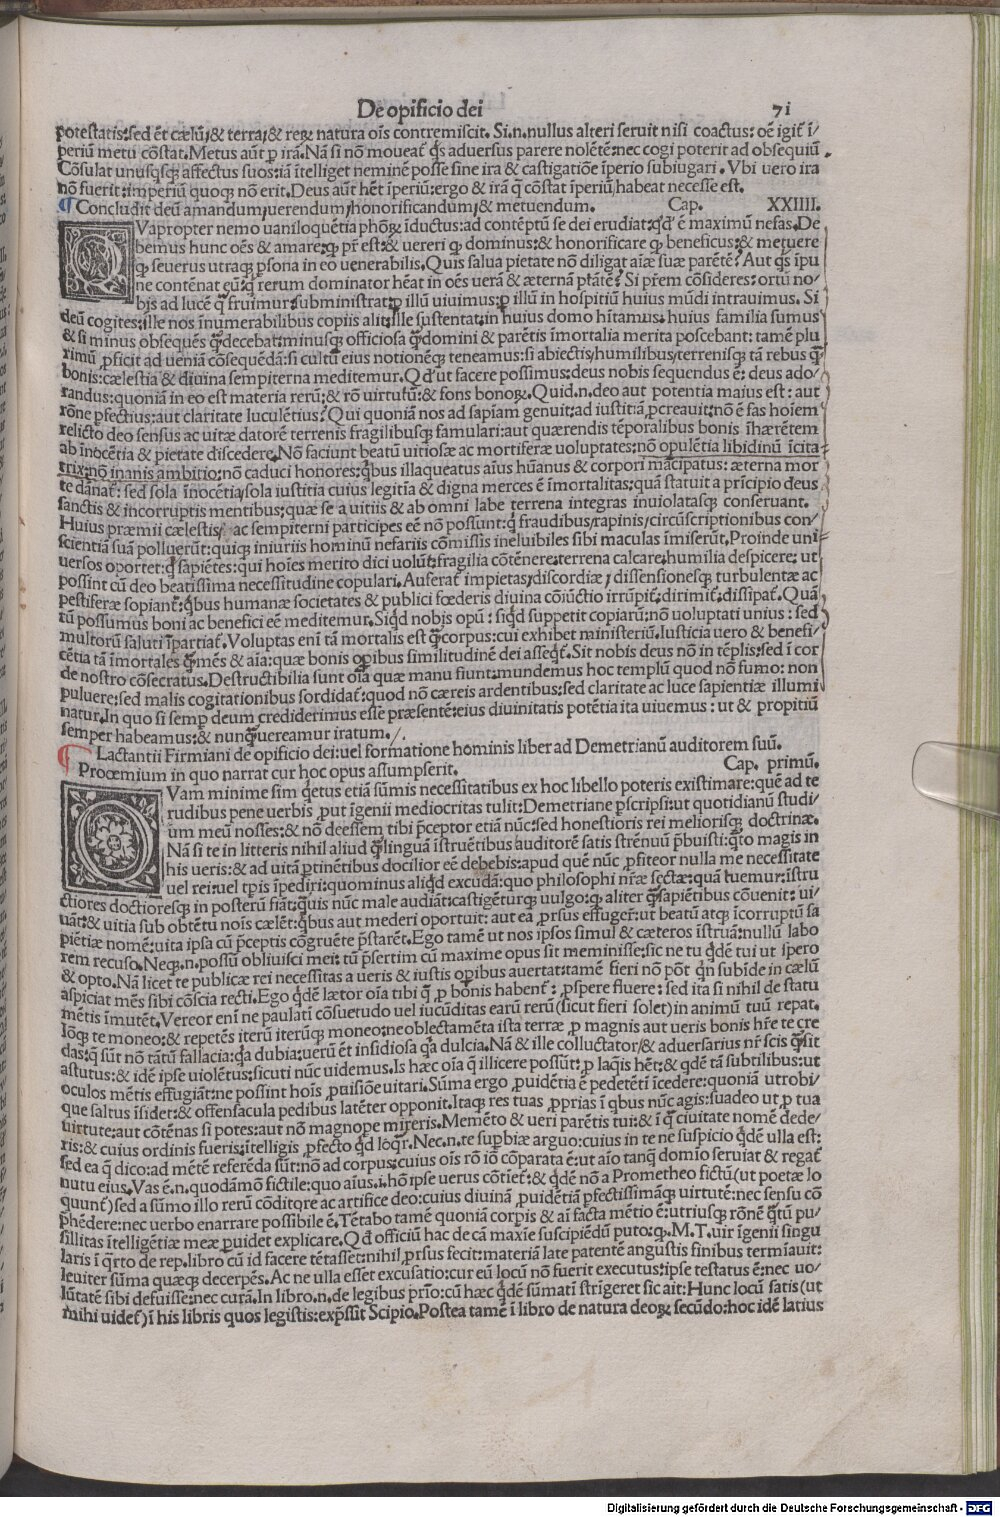 De opificio dei
71
potestatis: sed et̄ cælū/& terra/& reꝝ natura oīs contremiscit. Si.n.nullus alteri seruit nisi coactus: oē igit̄ ī/
periū metu cōstat. Metus aūt ꝑ irā. Nā si nō moueat̄ q̄s aduersus parere nolētē: nec cogi poterit ad obsequiū.
Cōsulat unusqsq; affectus suos: iā ītelliget neminē posse sine ira & castigatiōe īperio subiugari. Vbi uero ira
nō fuerit: imperiū quoq; nō erit. Deus aūt hēt īperiū: ergo & irā q̄ cōstat īperiū/habeat necesse est.
¶ Concludit deū amandum/uerendum/honorificandum/& metuendum. Cap. XXIIII.
QVapropter nemo uaniloquētia phōꝝ īductus: ad contēptū se dei erudiat: qd̄ ē maximū nefas. De
bemus hunc oēs & amare: qꝫ pr̄ est: & uereri qꝫ dominus: & honorificare qꝫ beneficus: & metuere
qꝫ seuerus utraq; ꝑsona in eo uenerabilis. Quis salua pietate nō diligat aīæ suæ parētē? Aut q̄s īpu
ne contēnat eū: q̄ rerum dominator hēat in oēs uerā & æternā ptātē? Si pr̄em cōsideres: ortū no/
bis ad lucē q̄ fruīmur subministrat: ꝑ illū uiuimus: ꝑ illū in hospitiū huius mūdi intrauimus. Si
deū cogites: ille nos īnumerabilibus copiis alit: ille sustentat: in huius domo hītamus: huius familia sumus
& si minus obsequēs q̄ decebat: minusq; officiosa q̄ domini & parētis īmortalia merita poscebant: tamē plu
rimū ꝓficit ad ueniā cōsequēdā: si cultū eius notionēq; teneamus: si abiectis/humilibus/terrenisq; tā rebus q̄
bonis: cælestia & diuina sempiterna meditemur. Qd̄ ut facere possimus: deus nobis sequendus ē: deus ado/
randus: quoniā in eo est materia rerū: & rō uirtutū: & fons bonoꝝ. Quid.n.deo aut potentia maius est: aut
rōne ꝑfectius: aut claritate luculētius? Qui quoniā nos ad sapīam genuit: ad iustitiā ꝓcreauit: nō ē fas hoīem
relicto deo sensus ac uitæ datorē terrenis fragilibusq; famulari: aut quærendis tēporalibus bonis īhærētem
ab īnocētia & pietate discedere. Nō faciunt beatū uitiosæ ac mortiferæ uoluptates: nō opulētia libidinū īcita
trix: nō inanis ambitio: nō caduci honores: qbus illaqueatus aīus hūanus & corpori mācipatus: æterna mor
te dānat̄: sed sola īnocētia/sola iustitia cuius legitīa & digna merces ē īmortalitas: quā statuit a prīcipio deus
sanctis & incorruptis mentibus: quæ se a uitiis & ab omni labe terrena integras inuiolatasq; conseruant.
Huius præmii cælestis/ ac sempiterni participes eē nō possūnt: q̄ fraudibus/rapinis/circūscriptionibus con/
scientiā suā polluerūt: quiq; iniuriis hominū nefariis cōmissis ineluibiles sibi maculas īmiserūt. Proinde uni/
uersos oportet: q̄ sapiētes: qui hoīes merito dici uolūt: fragilia cōtēnere: terrena calcare: humilia despicere: ut
possint cū deo beatissima necessitudine copulari. Auferat̄ impietas/discordiæ/dissensionesq; turbulentæ ac
pestiferæ sopiant̄: qbus humanæ societates & publici fœderis diuina cōiūctio irrūpit̄: dirimit̄: dissipat̄. Quā
tū possumus boni ac benefici eē meditemur. Siqd nobis opū: siqd suppetit copiarū: nō uoluptati unius: sed
multorū saluti īpartiat̄. Voluptas enī tā mortalis est q̄ corpus: cui exhibet ministeriū. Iusticia uero & benefi/
cētia tā īmortales q̄ mēs & aīa: quæ bonis oꝑibus similitudinē dei asseqt̄. Sit nobis deus nō in tēplis: sed ī cor
de nostro cōsecratus. Destructibilia sunt oīa quæ manu fiunt: mundemus hoc templū quod nō fumo: non
puluere: sed malis cogitationibus sordidat̄: quod nō cæreis ardentibus: sed claritate ac luce sapientiæ illumi
natur. In quo si semꝑ deum crediderimus esse præsentē: eius diuinitatis potētia ita uiuemus: ut & propitiū
semper habeamus: & nunq̄ uereamur iratum.
¶ Lactantii Firmiani de opificio dei: uel formatione hominis liber ad Demetrianū auditorem suū.
Procemium in quo narrat cur hoc opus assumpserit. Cap. primū.
QVam minime sim qetus etiā sūmis necessitatibus ex hoc libello poteris existimare: quē ad te
rudibus pene uerbis ꝓut īgenii mediocritas tulit: Demetriane ꝑscripsi: ut quotidianū studi/
um meū nosses: & nō deessem tibi p̄ceptor etiā nūc: sed honestioris rei meliorisq; doctrinæ.
Nā si te in litteris nihil aliud q̄ linguā īstruētibus auditorē satis strēnuū p̄buisti: qto magis in
his ueris: & ad uitā ꝑtinētibus docilior eē debebis: apud quē nūc ꝓfiteor nulla me necessitate
uel rei: uel tp̄is īpediri: quominus aliqd excudā: quo philosophi nr̄æ sectæ: quā tuemur: īstru
ctiores doctioresq; in posterū fiāt: q̄uis nūc male audiāt: castigēturq; uulgo: qꝫ aliter q̄ sapiētibus cōuenit: ui/
uāt: & uitia sub obtētu noīs cælēt: qbus aut mederi oportuit: aut ea ꝓrsus effugeŕ: ut beatū atq; īcorruptū sa
piētiæ nomē: uita ipsa cū p̄ceptis cōgruēte p̄starēt. Ego tamē ut nos ipsos simul & cæteros īstruā: nullū labo
rem recuso. Neq;.n.possū obliuisci mei: tū p̄sertim cū maxime opus sit meminisse: sic ne tu qdē tui ut spero
& opto. Nā licet te publicæ rei necessitas a ueris & iustis oꝑibus auertat: tamē fieri nō pōt qn subīde in cælū
aspiciat mēs sibi cōscia recti. Ego qdē lætor oīa tibi q̄ ꝓ bonis habent̄: ꝓspere fluere: sed ita si nihil de statu
mētis īmutēt. Vereor enī ne paulatī cōsuetudo uel iucūditas earū rerū (sicut fieri solet) in animū tuū repat.
Iōq; te moneo: & repetēs iterū iterūq; moneo: ne oblectamēta ista terræ ꝓ magnis aut ueris bonis hr̄e te cre
das: q̄ sūt nō tātū fallacia: qa dubia: uerū ēt insidiosa qa dulcia. Nā & ille colluctator/& aduersarius nr̄ scis q̄ sit
astutus: & idē ipse uiolētus: sicuti nūc uidemus. Is hæc oīa q̄ illicere possūt: ꝓ laqis hēt: & qdē tā subtilibus: ut
oculos mētis effugiāt: ne possint hoīs ꝓuisiōe uitari. Sūma ergo ꝓuidētia ē pedetētī īcedere: quoniā utrobi/
que saltus īsidet: & offensacula pedibus latēter opponit. Itaq; res tuas ꝓprias ī qbus nūc agis: suadeo ut ꝓ tua
uirtute: aut cōtēnas si potes: aut nō magnope mireris. Memēto & ueri parētis tui: & ī q̄ ciuitate nomē dede/
ris: & cuius ordinis fueris: ītelligis ꝓfecto qd loqr̄. Nec.n.te suꝑbiæ arguo: cuius in te ne suspicio qdē ulla est:
sed ea q̄ dico: ad mētē referēda sūt: nō ad corpus: cuius oīs rō iō cōparata ē: ut aīo tanq̄ domīo seruiat & regat̄
nutu eius. Vas ē.n.quodāmō fictile: quo aīus.i.hō ipse uerus cōtīet̄: & qdē nō a Prometheo fictū (ut poetæ lo
quunt̄) sed a sūmo illo rerū cōditore ac artifice deo: cuius diuinā ꝓuidētiā ꝑfectissimāq; uirtutē: nec sensu cō
p̄hēdere: nec uerbo enarrare possibile ē. Tētabo tamē quoniā corpis & aī facta mētio ē: utriusq; rōnē q̄tū pu/
sillitas ītelligētiæ meæ ꝑuidet explicare. Qd̄ officiū hac de cā maxīe suscipiēdū puto: qꝫ. M.T. uir īgenii singu
laris ī qrto de rep. libro cū id facere tētasset: nihil ꝓrsus fecit: materiā late patentē angustis finibus termīauit:
leuiter sūma quæq; decerpēs. Ac ne ulla esset excusatio: cur eū locū nō fuerit executus: ipse testatus ē: nec uo/
lūtatē sibi defuisse: nec curā. In libro.n.de legibus prīo: cū hæc qdē sūmatī strīgeret sic ait: Hunc locū satis (ut
mihi uidet̄) ī his libris quos legistis: exp̄ssit Scipio. Postea tamē ī libro de natura deoꝝ secūdo: hoc idē latius
Digitalisierung gefördert durch die Deutsche Forschungsgemeinschaft - DFG